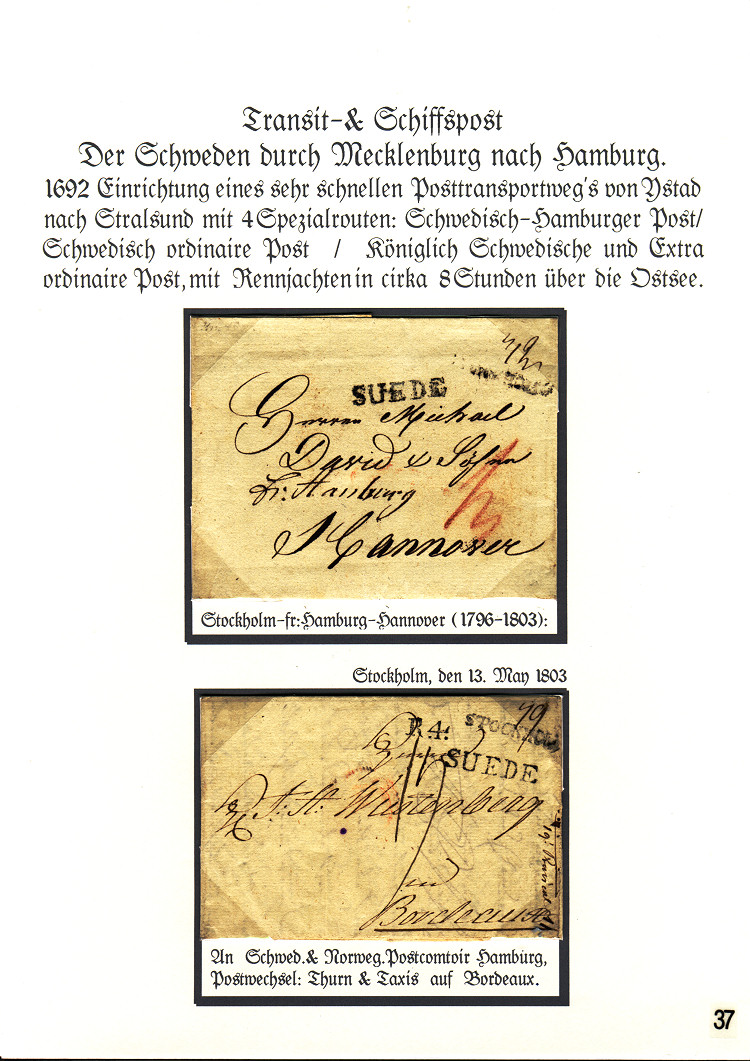 Transit-& Schiffspost
Der Schweden durch Mecklenburg nach Hamburg.
1692 Einrichtung eines sehr schnellen Posttransportweg's von Ystad
nach Stralsund mit 4 Spezialrouten: Schwedisch-Hamburger Post/
Schwedisch ordinaire Post / Königlich Schwedische und Extra
ordinaire Post, mit Rennjachten in cirka 8 Stunden über die Ostsee.
SUEDE
Herren Michael
David & Söhne
fr: Hamburg
Hannover
Stockholm-fr:Hamburg-Hannover (1796-1803):
Stockholm, den 13. May 1803
R.4.
STOCKHOLM
SUEDE
Wüstenberg
Bordeaux
An Schwed.& Norweg.Postcomtoir Hamburg,
Postwechsel: Thurn & Taxis auf Bordeaux.
37